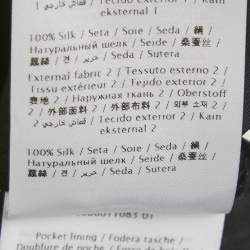 قماش خارجي 1 / Tecido exterior 1 / Kain
eksternal 1
100% Silk / Seta / Soie / Seda / 絹 /
Натуральный шелк / Seide / 桑蚕丝 /
蠶絲 / 견 / حرير / Seda / Sutera
External fabric 2 / Tessuto esterno 2 /
Tissu extérieur 2 / Tejido exterior 2 /
表地 2 / Наружная ткань 2 / Oberstoff
2 / 外部面料 2 / 外部布料 2 / 외부 소재 2
/ قماش خارجي 2 / Tecido exterior 2 /
Kain eksternal 2
100% Silk / Seta / Soie / Seda / 絹 /
Натуральный шелк / Seide / 桑蚕丝 /
蠶絲 / 견 / حرير / Seda / Sutera
Pocket lining / Fodera tasche /
Doublure de poche / Forro de